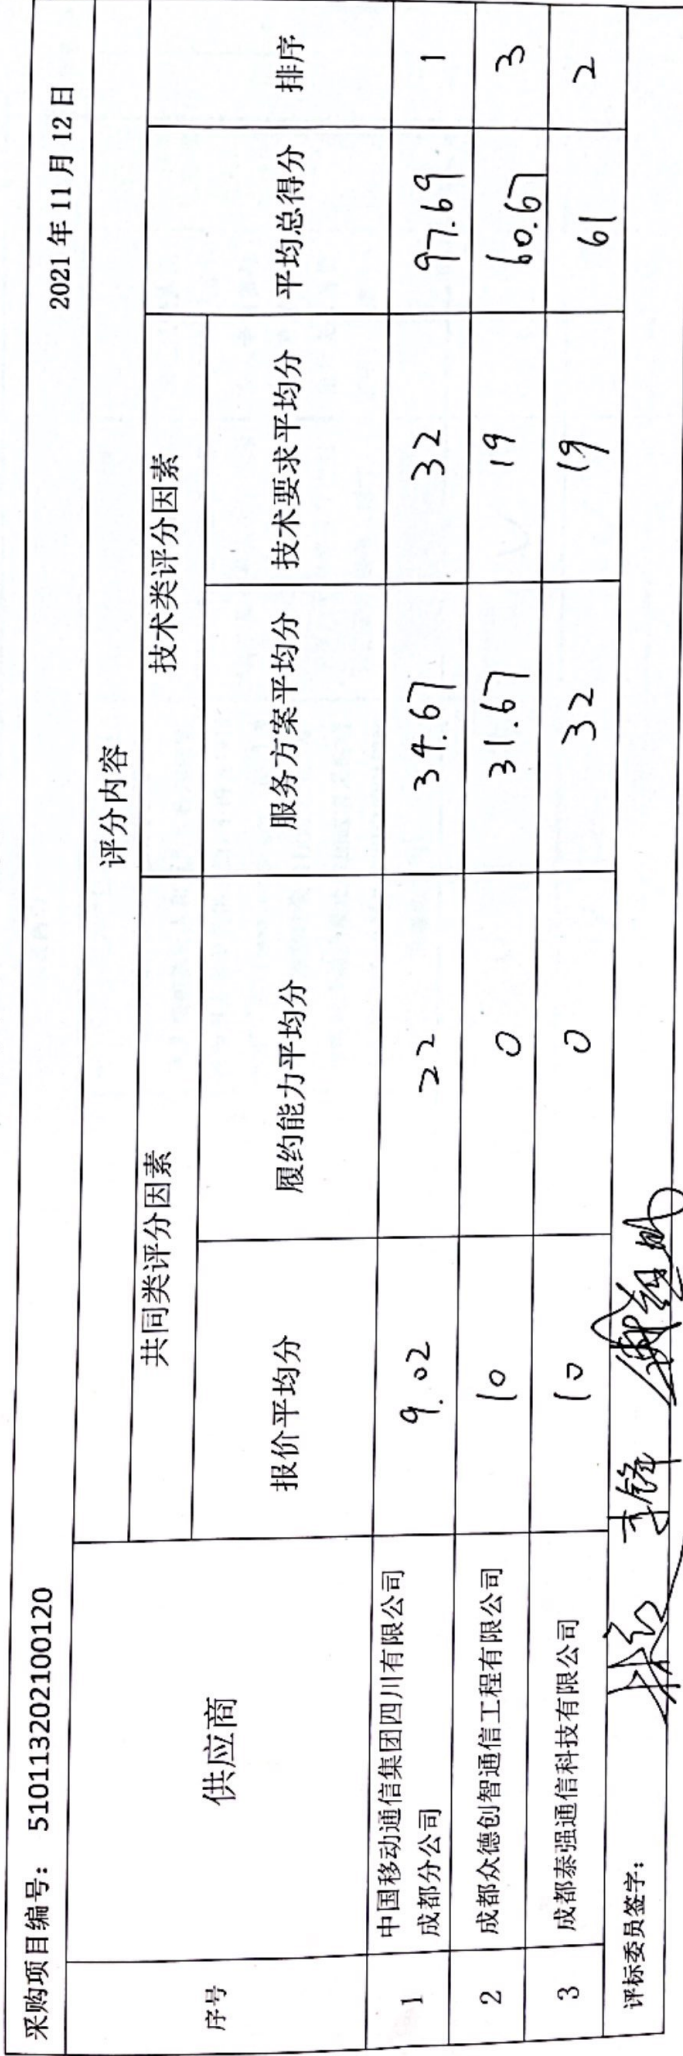 采购项目编号： 510113202100120 2021 年 11 月 12 日
评分内容
共同类评分因素 技术类评分因素
序号 供应商 报价平均分 履约能力平均分 服务方案平均分 技术要求平均分 平均总得分 排序
1 中国移动通信集团四川有限公司
成都分公司 9.02 22 34.67 32 97.69 1
2 成都众德创智通信工程有限公司 10 0 31.67 19 60.67 3
3 成都泰强通信科技有限公司 10 0 32 19 61 2
评标委员签字：